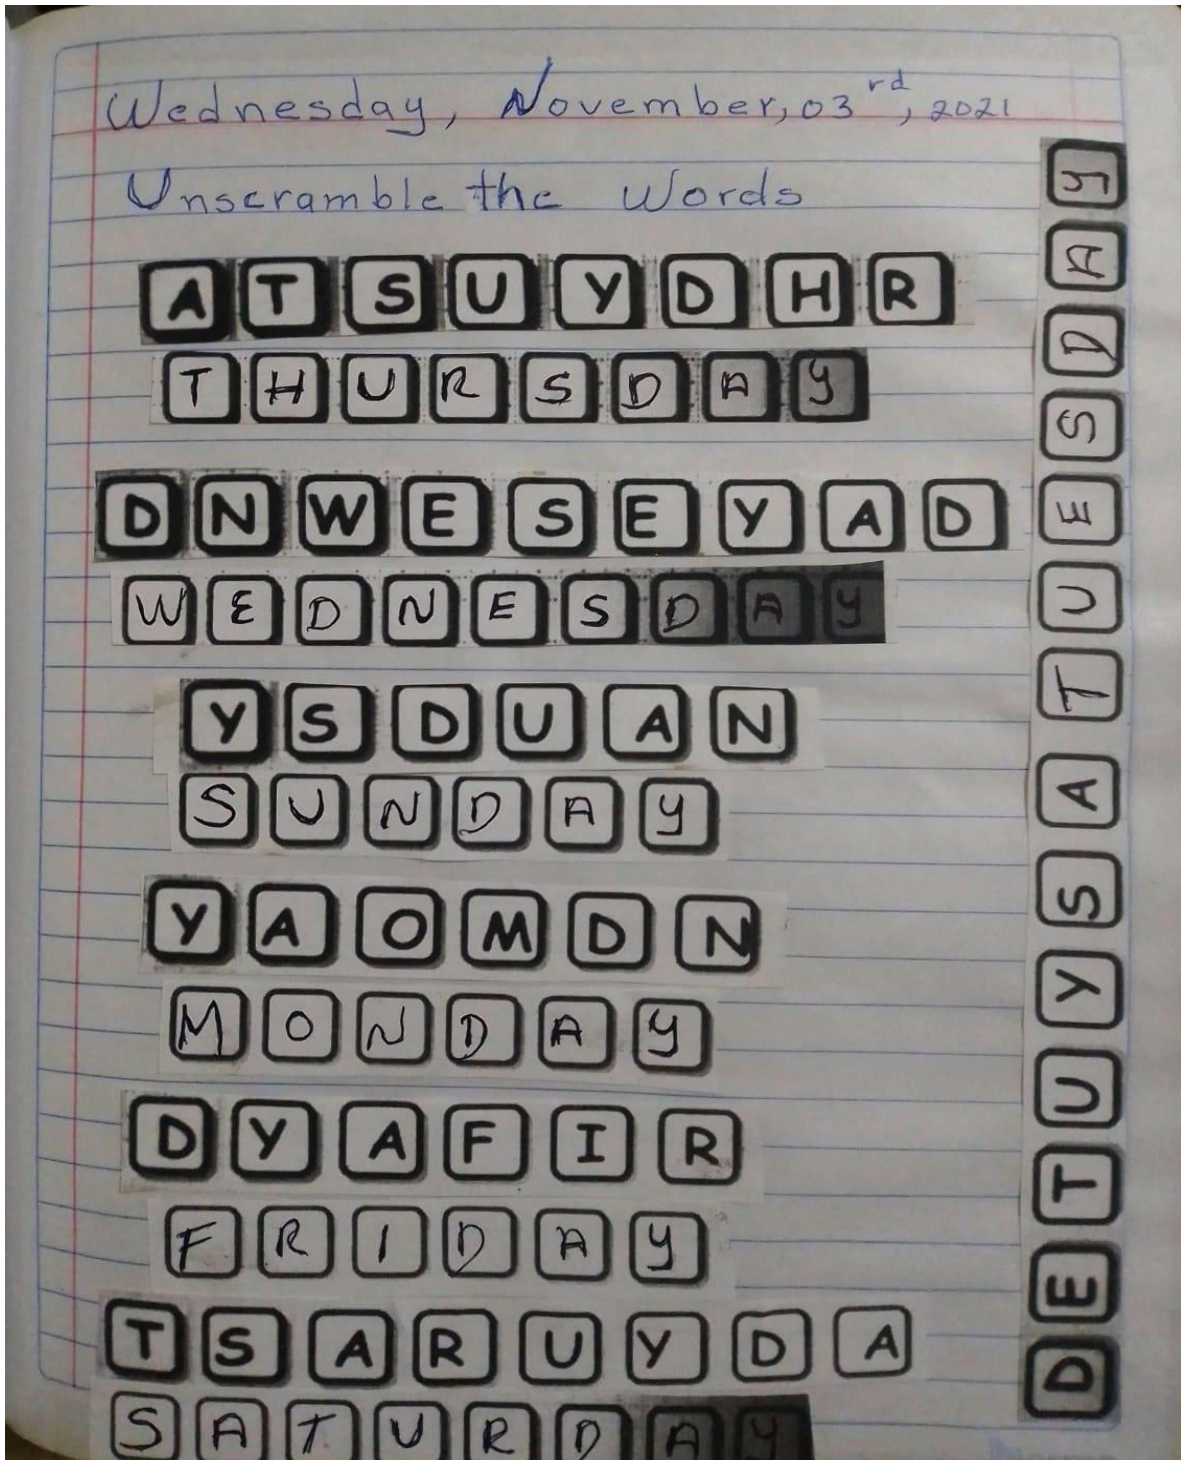 Wednesday, November, 03rd, 2021
Unscramble the Words
ATSUYDHR
THURSDAY
DNWESEYAD
WEDNESDAY
YSDUAN
SUNDAY
YAOMDN
MONDAY
DYAFIR
FRIDAY
TSARUYDA
SATURDAY
DETUYSA
TUESDAY